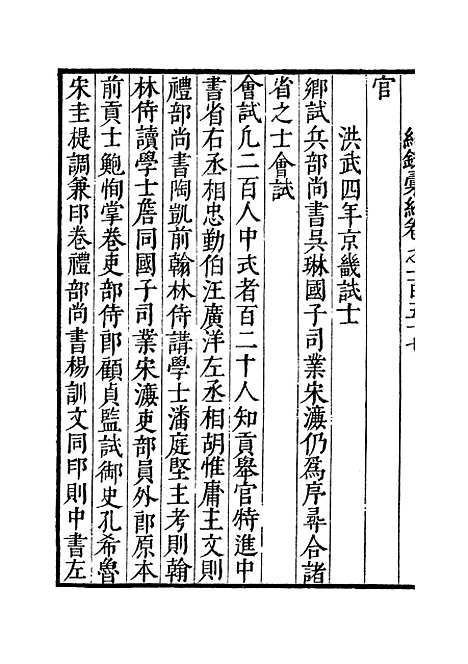 紀錄彙編卷之一百五十七
官
洪武四年京畿試士
鄉試兵部尚書吳琳國子司業宋濂仍為序尋合諸
省之士會試
會試凡二百人中式者百二十人知貢舉官特進中
書省右丞相忠勤伯汪廣洋左丞相胡惟庸主文則
禮部尚書陶凱前翰林侍講學士潘庭堅主考則翰
林侍讀學士詹同國子司業宋濂吏部員外郎原本
前貢士鮑恂掌卷吏部侍郎顧貞監試御史孔希魯
朱圭梴調兼印卷禮部尚書楊訓文同印則中書左